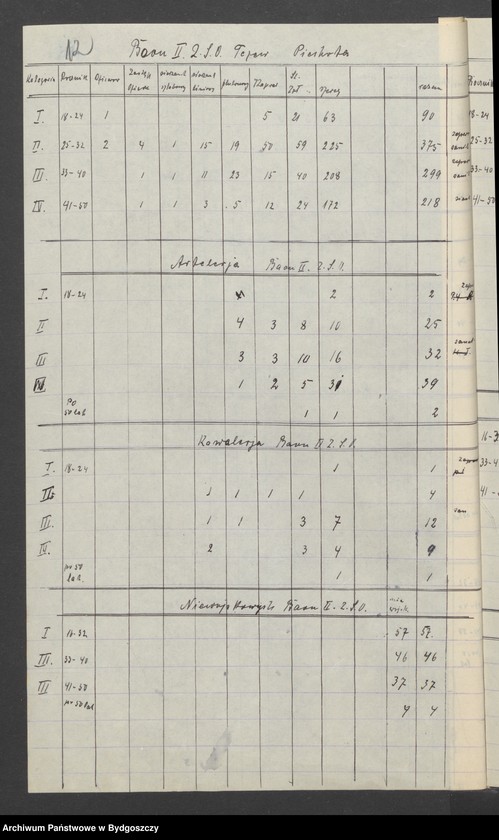 12
Baon II. 2. S.O. Tczew Piechota
Kategoria Rocznik Oficer Zastęp. Oficera sierżant sztabowy sierżant liniowy plutonowy Kapral St. Żoł. szereg. razem
I. 18-24 1 5 21 63 90
II. 25-32 2 4 1 15 19 50 59 225 375
III. 33-40 1 1 11 23 15 40 208 299
IV. 41-50 1 1 3 5 12 24 172 218
Artyleria Baon II. 2. S.O.
I. 18-24 2 2
II 4 3 8 10 25
III 3 3 10 16 32
IV 1 2 5 31 39
Po 50 lat 1 1 2
Kawalerja Baon II 2. S.O.
I. 18-24 1 1
II. 1 1 1 1 4
III. 1 1 3 7 12
IV. 2 3 4 9
po 50 lat. 1 1
Niewojskowych Baon II. 2. S.O.
I 18-32 57 57.
III. 33-40 46 46
III 41-50 37 37
po 50 lat 4 4
Rocznik
18-24
25-32
33-40
41-50
33-4
41-
Archiwum Państwowe w Bydgoszczy